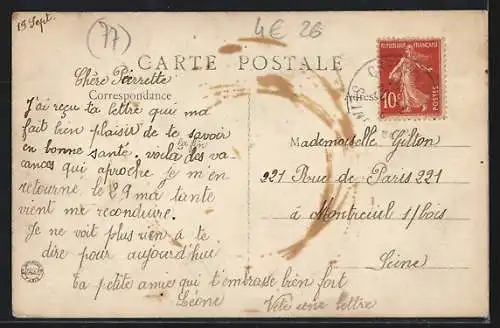 19 Sept.
(77)
4€ 26
CARTE POSTALE
RÉPUBLIQUE FRANÇAISE
10
POSTES
Chère Pierrette
Correspondance
J'ai reçu ta lettre qui ma
fait bien plaisir de te savoir
en bonne santé. voila des va
la fin
cances qui aproche je m'en
retourne le 29 ma tante
vient me reconduire.
Je ne voit plus rien à te
dire pour aujourd'hui
ta petite amie qui t'embrasse bien fort
Léone
Vite une lettre
Adresse
Mademoiselle Gilton
221 Rue de Paris 221
à Montreuil s/bois
Seine